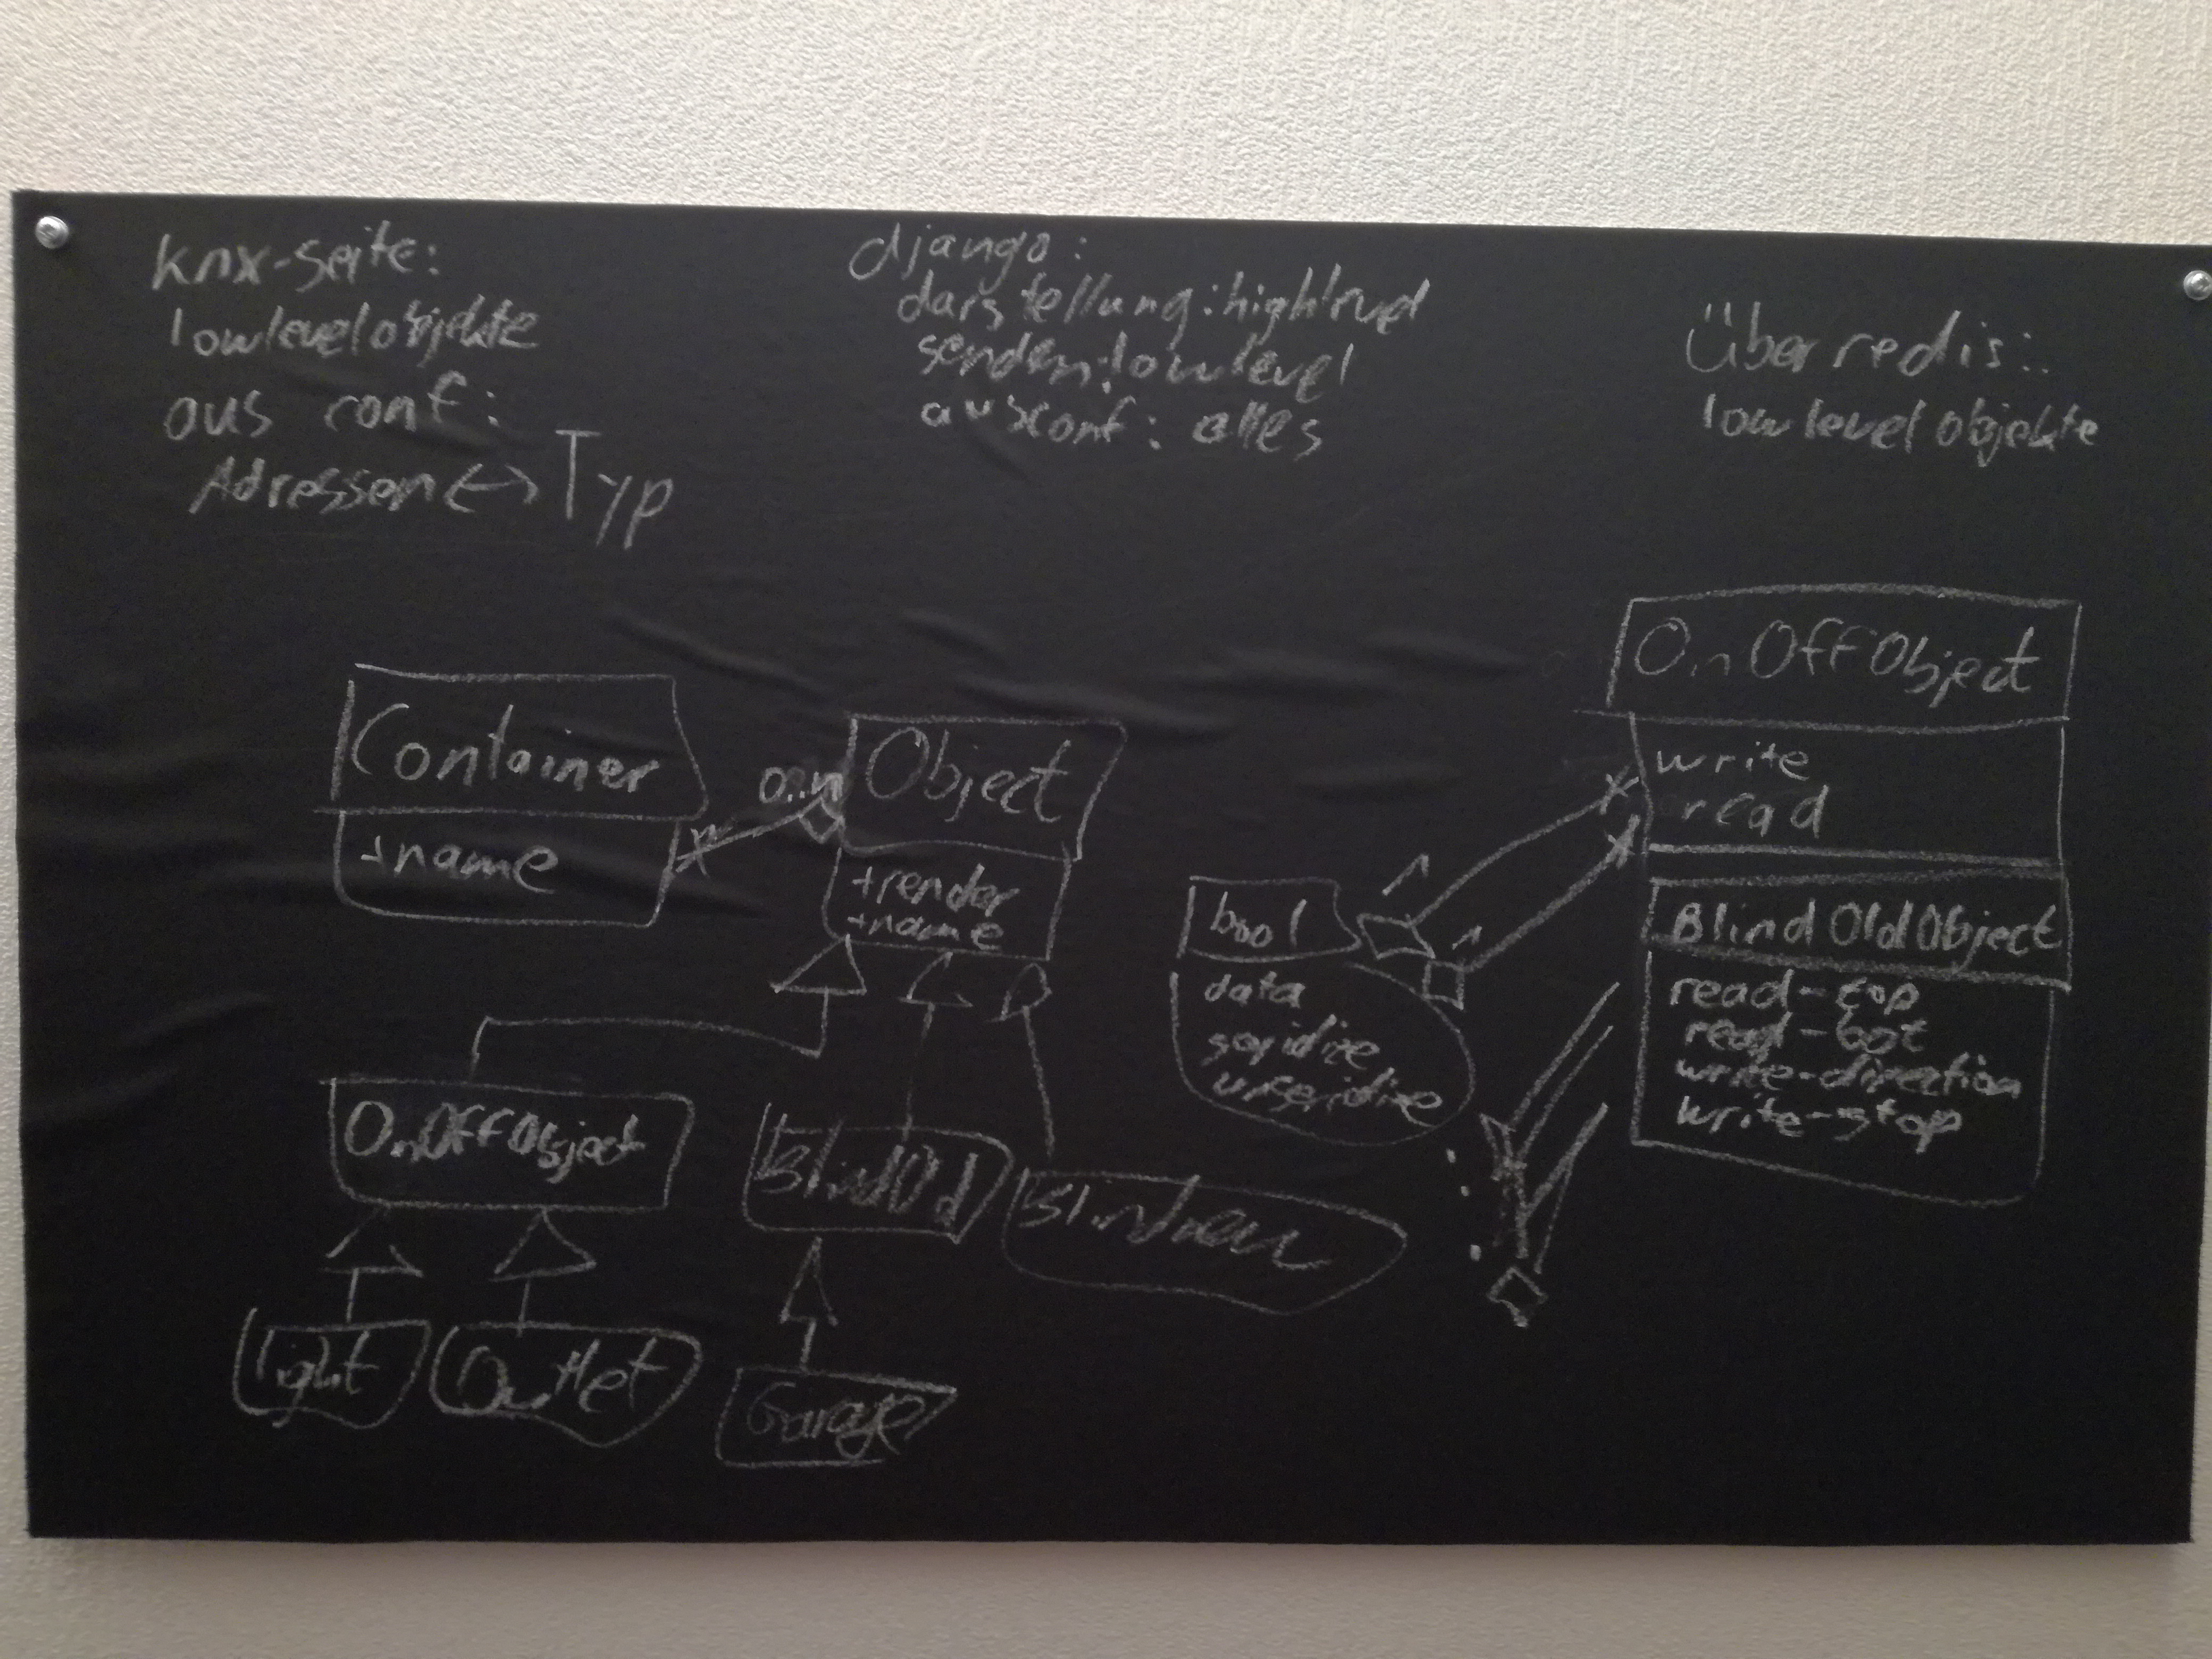 knx-seite:
lowlevelobjekte
aus conf:
Adressen <-> Typ
django:
darstellung: highlevel
senden: lowlevel
aus conf: alles
Über redis:
lowlevel objekte
Container
+name
0..n
*
Object
+render
+name
OnOffObject
BlindOld
Light
Outlet
Garage
bool
data
1
1
*
*
OnOffObject
write
read
BlindOldObject
read-top
read-bot
write-direction
write-stop